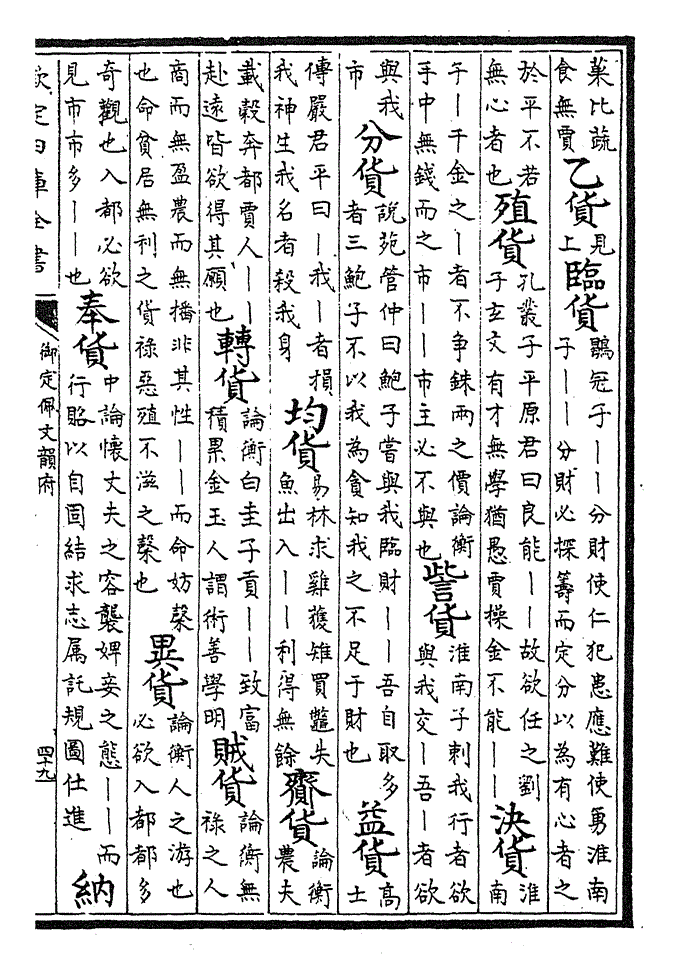 菓比蔬食無賈 乙貨 見上 臨貨 鶡冠子丨丨分財使仁犯患應難使勇淮南子丨丨分財必探籌而定分以為有心者之
於平不若無心者也 殖貨 孔叢子平原君曰良能丨丨故欲任之劉子玄文有才無學猶愚賈操金不能丨丨 決貨 淮南
子丨千金之丨者不爭銖兩之價論衡手中無錢而之市丨丨市主必不與也 訾貨 淮南子刺我行者欲與我交丨吾丨者欲
與我市 分貨 說苑管仲曰鮑子嘗與我臨財丨丨吾自取多者三鮑子不以我為貪知我之不足于財也 益貨 高士
傳嚴君平曰丨我丨者損我神生我名者殺我身 均貨 易林求雞獲雉買鼈失魚出入丨丨利得無餘 齎貨 論衡農夫
載穀奔都賈人丨丨赴遠皆欲得其願也 轉貨 論衡白圭子貢丨丨致富積累金玉人謂術善學明 賊貨 論衡無祿之人
商而無盈農而無播非其性丨丨而命妨榖也命貧居無利之貨祿惡殖不滋之榖也 異貨 論衡人之游也必欲入都都多
奇觀也入都必欲見市市多丨丨也 奉貨 中論懷丈夫之容襲婢妾之態丨丨而行賂以自固結求志属託規圖仕進 納
欽定四庫全書
御定佩文韻府
四十九